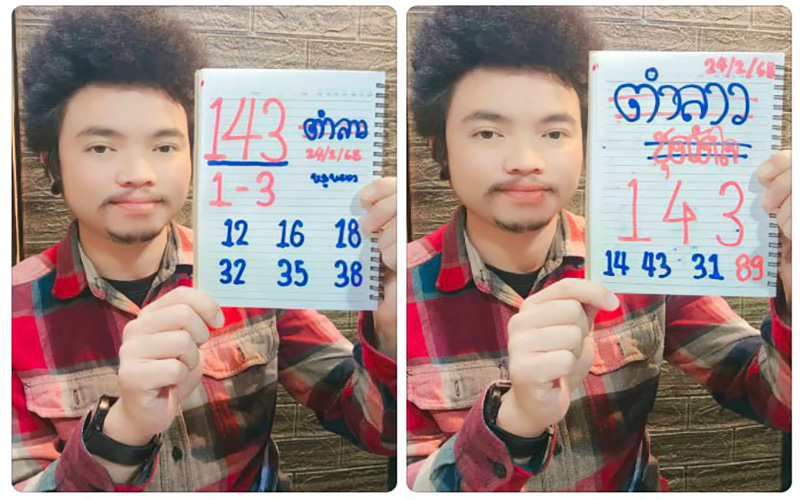 143
ตำลาว
24/2/68
1-3
12 16 18
32 35 38
24/2/68
ตำลาว
143
14 43 31 89